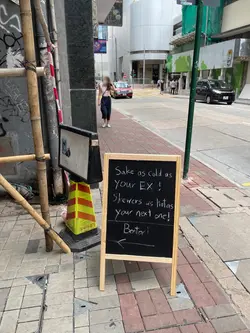 Sake as cold as
your EX !
Skewers as hot as
your next one!
Enter: